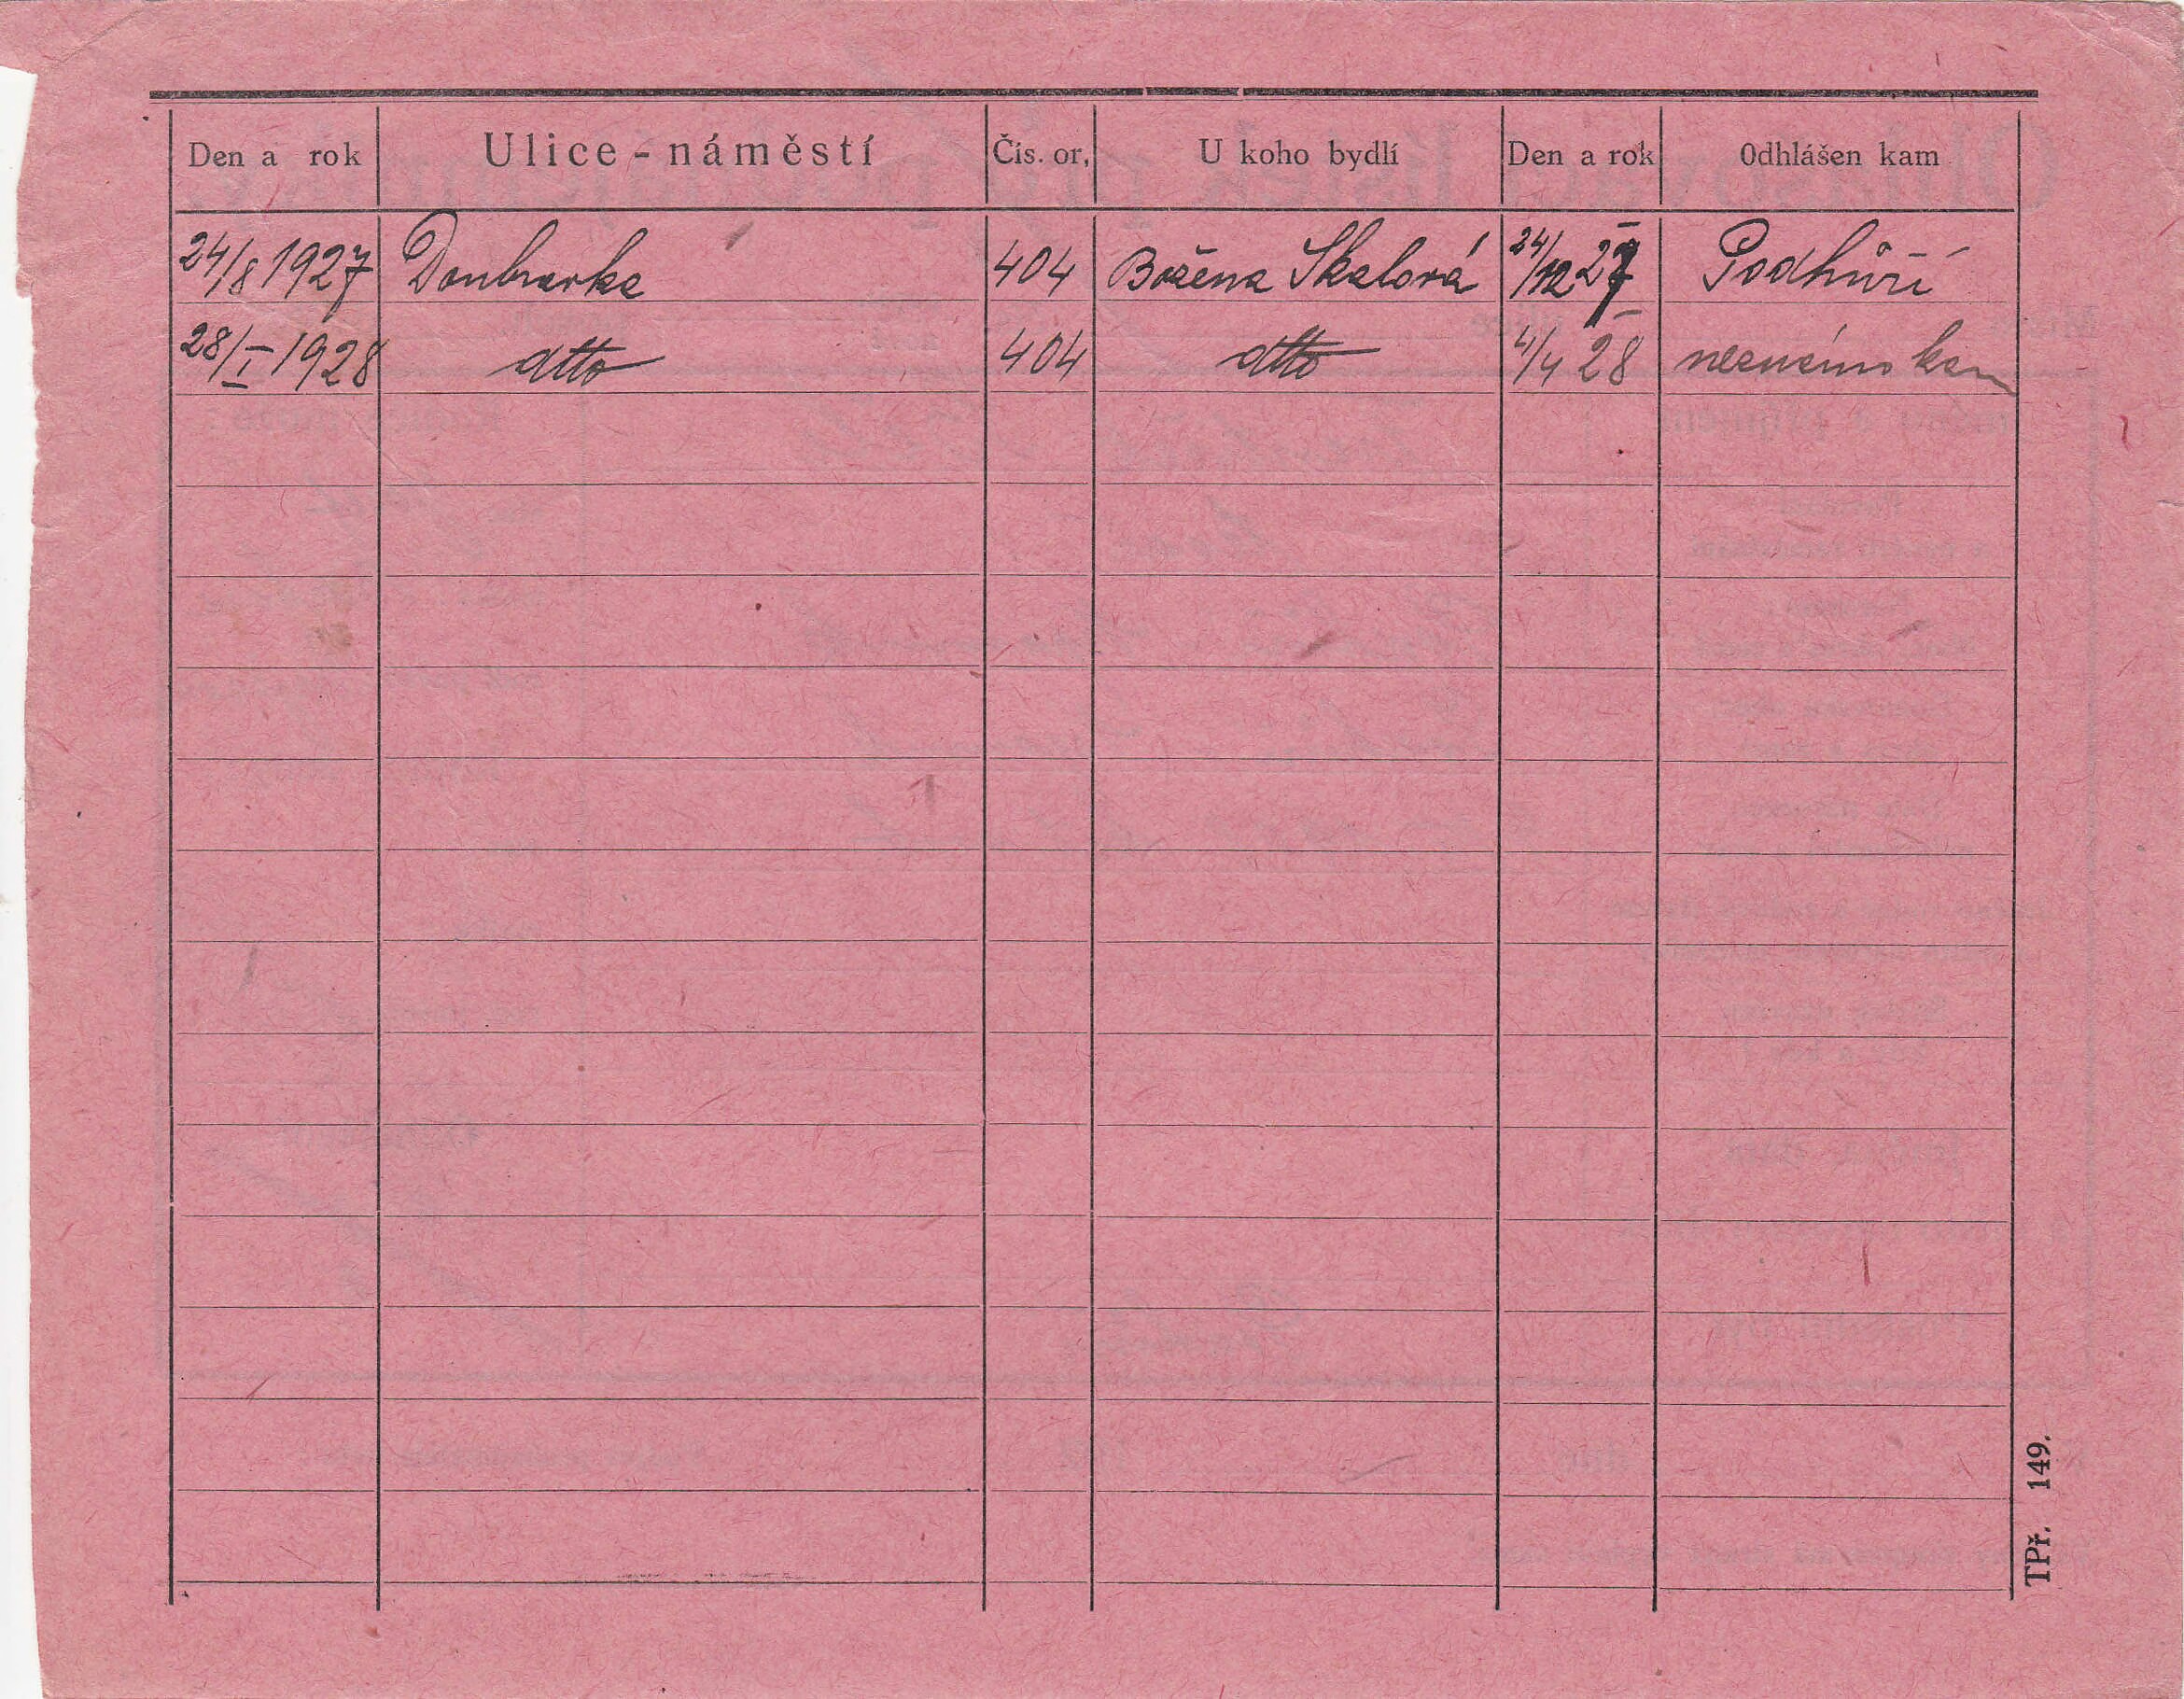 Den a rok Ulice - náměstí Čís. or. U koho bydlí Den a rok Odhlášen kam
24/8 1927 Doubravka 404 Božena Skalová 24/12 27 Podhůří
28/I 1928 dtto 404 dtto 4/4 28 neznámo kam
TPř. 149.